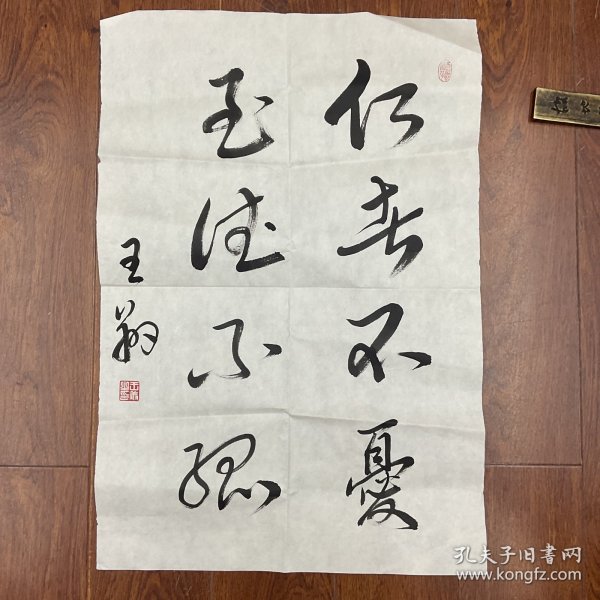 仁者不憂
至德不孤
王翔
孔夫子旧书网
www.kongfz.com